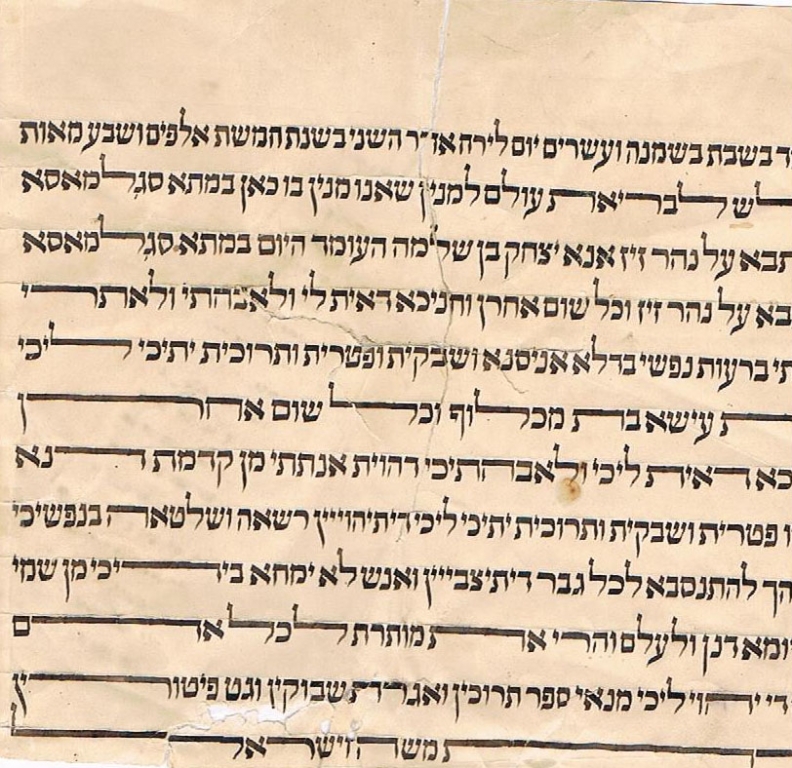 בשבת בשמנה ועשרים יום לירח אדר השני בשנת חמשת אלפים ושבע מאות
לבריאת עולם למנין שאנו מנין בו כאן במתא סגלמאסא
על נהר זיז אנא יצחק בן שלמה העומד היום במתא סגלמאסא
על נהר זיז וכל שום אחרן וחניכא דאית לי ולאבהתי ולאתרי
ברעות נפשי בדלא אניסנא ושבקית ופטרית ותרוכית יתיכי ליכי
עישא ברת מכלוף וכל שום אחרן
דאית ליכי ולאבהתיכי דהוית אנתתי מן קדמת דנא
פטרית ושבקית ותרוכית יתיכי ליכי דיתיהוייין רשאה ושלטאה בנפשיכי
להתנסבא לכל גבר דיתיצבייין ואנש לא ימחא בידיכי מן שמי
דנן ולעלם והרי את מותרת לכל אדם
די יהוי ליכי מנאי ספר תרוכין ואגרת שבוקין וגט פיטורין
משה וישראל